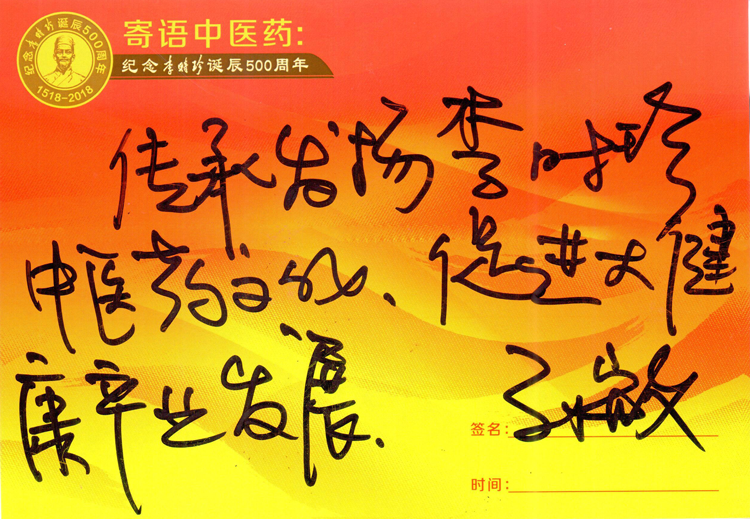 纪念李时珍诞辰500周年
1518-2018
寄语中医药:
纪念李时珍诞辰500周年
传承发扬李时珍
中医药文化、促进大健
康产业发展.
签名:
时间: